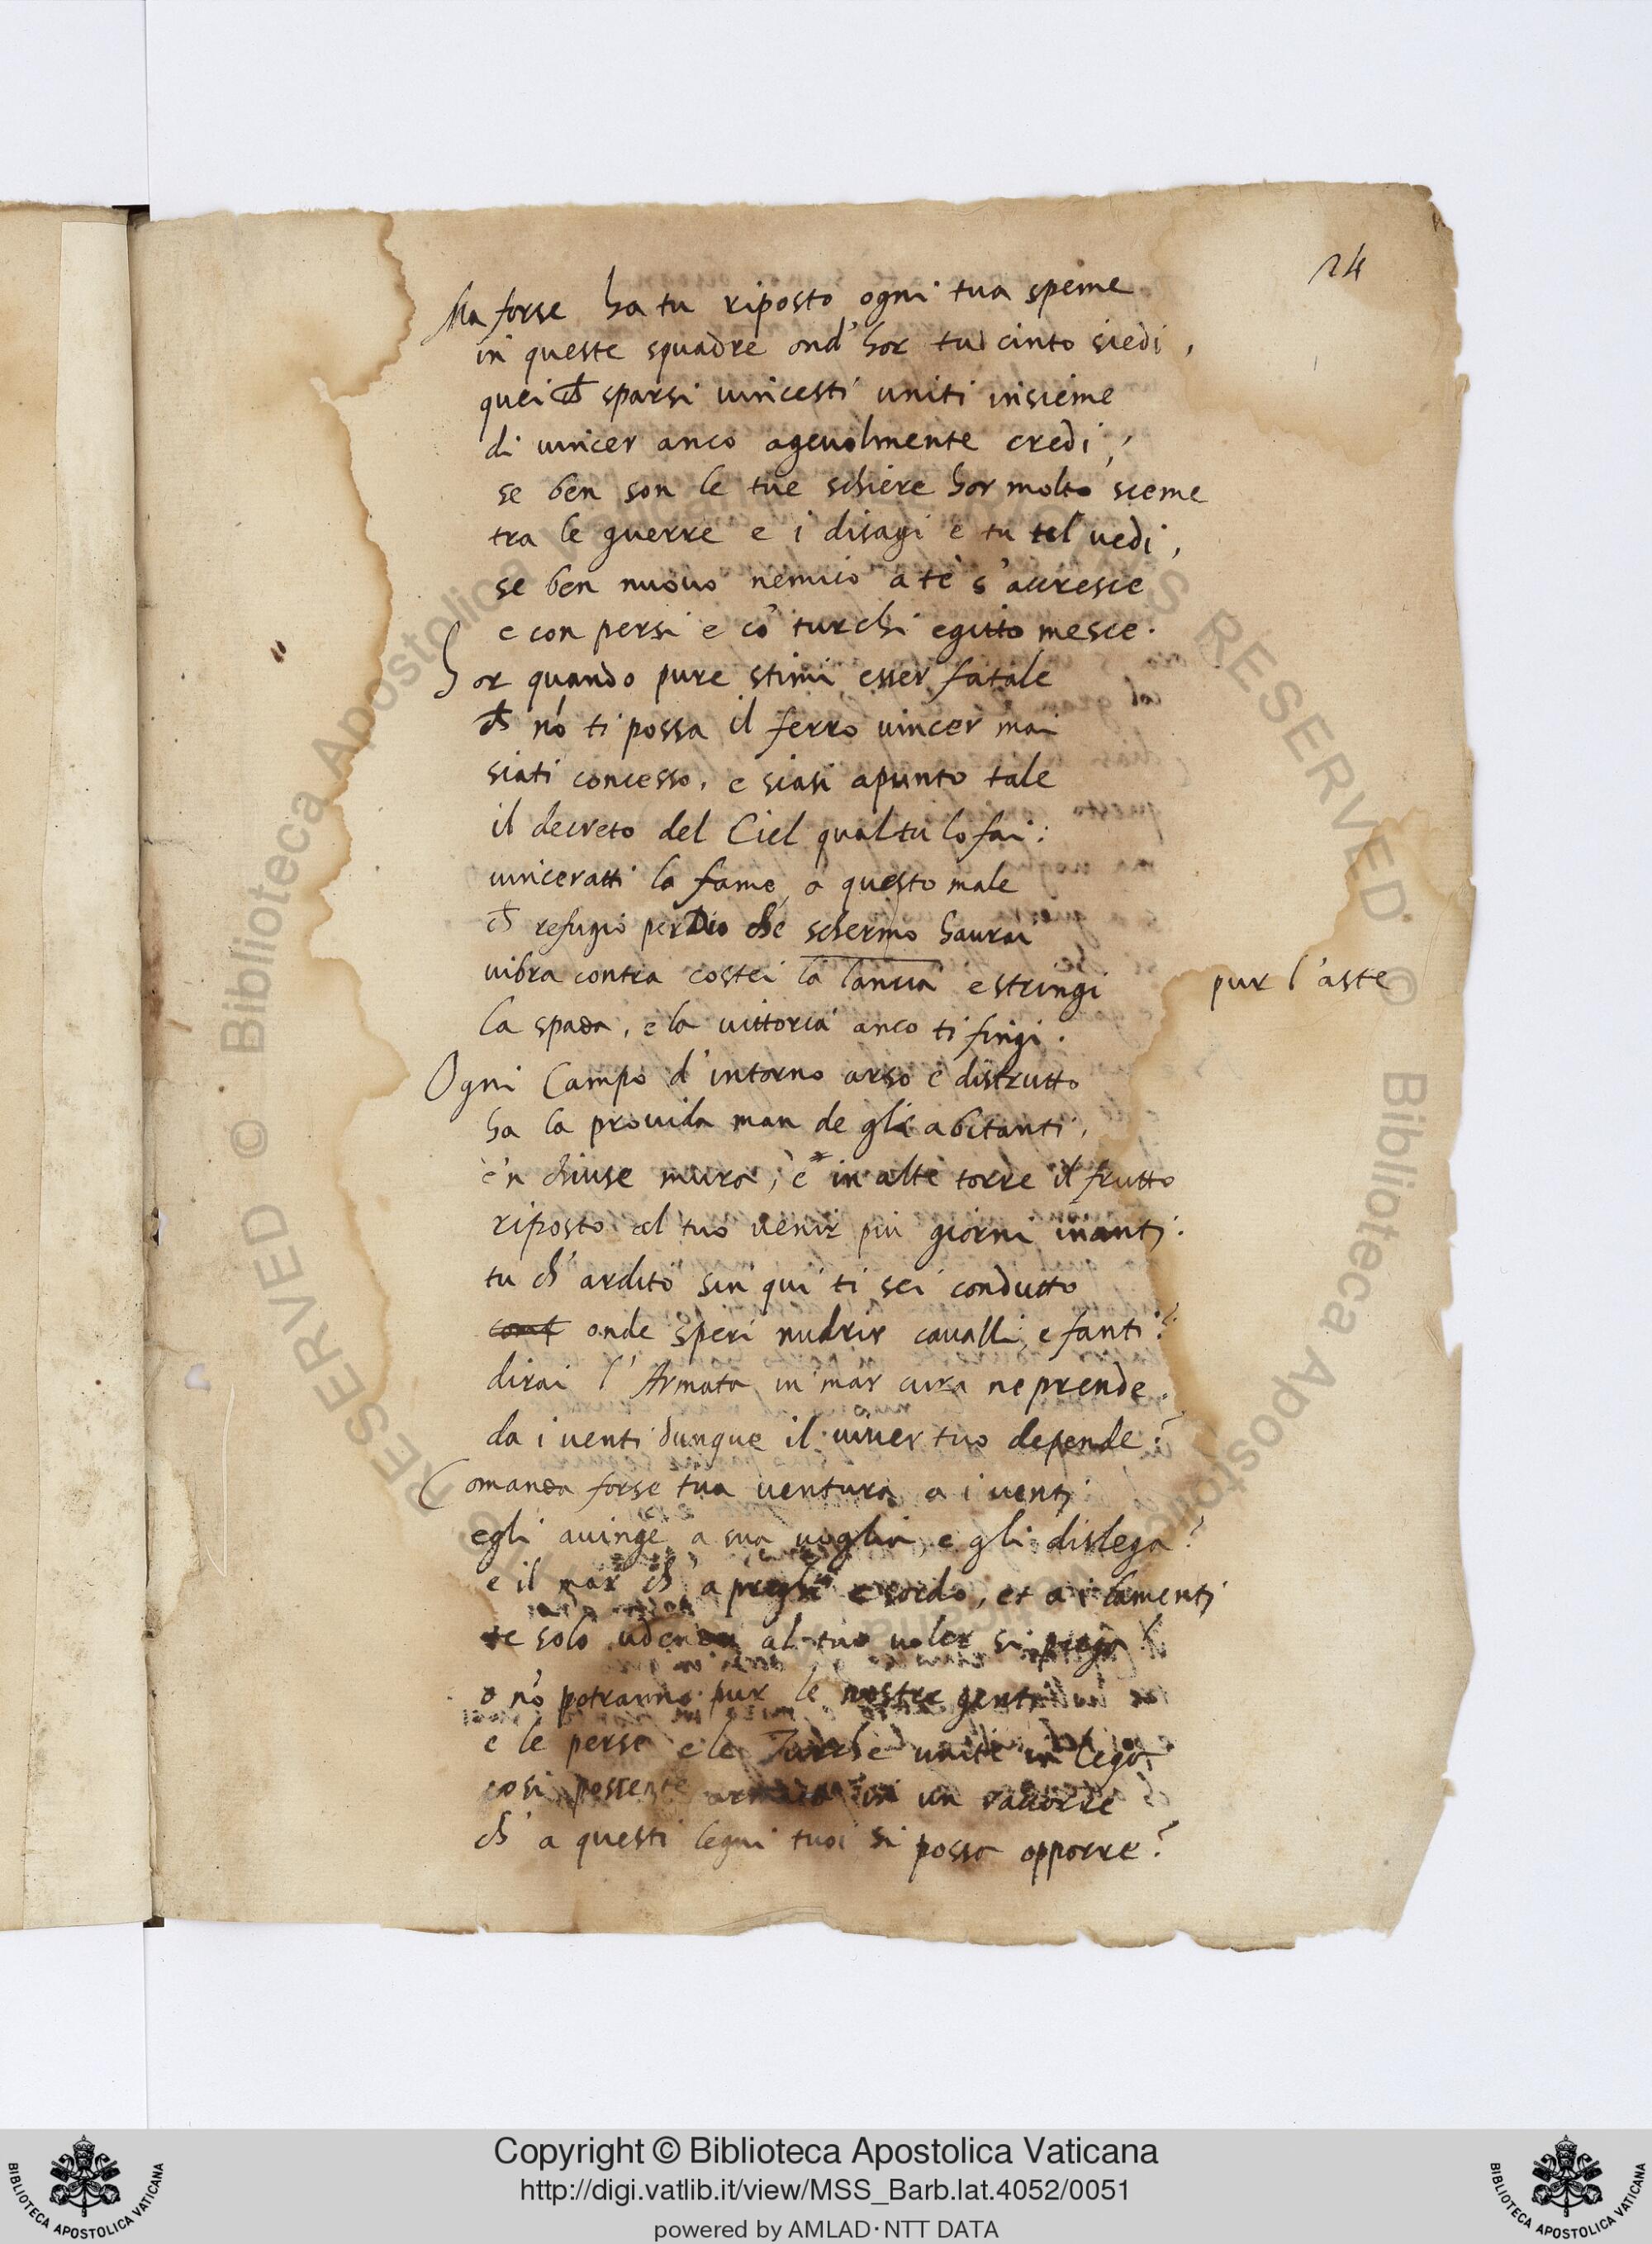 24
Ma forse ha tu riposto ogni tua speme
in queste squadre ond'hor tu cinto siedi,
quei ch̃ sparsi vincesti uniti insieme
di vincer anco agevolmente credi,
se ben son le tue schiere hor molto sceme
tra le guerre e i disagi e tu tel vedi,
se ben nuovo nemico a te s'accresce
e con persi e cõ turchi egitto mesce.
Hor quando pure stimi esser fatale
ch̃ nõ ti possa il ferro vincer mai
siati concesso, e siasi apunto tale
il decreto del Ciel qual tu lo fai:
vinceratti la fame, a questo male
ch̃ refugio per Dio che schermo haurai
vibra contra costei la lancia e stringi
pur l'aste
la spada, e la vittoria anco ti fingi.
Ogni Campo d'intorno arso e distrutto
ha la provida man de gli abitanti,
e'n chiuse mura, e in alte torre il frutto
riposto al tuo venir piu giorni inanti:
tu ch'ardito sin qui ti sei condutto
onde speri nudrir cavalli e fanti?
dirai l'Armata in mar cura ne prende.
da i venti dunque il viver tuo depende?
Comanda forse tua ventura a i venti
egli avinge a sua voglia e gli dislega?
e il mar ch'a preghi e sordo, et a i lamenti
te solo udendo al tuo voler si piega?
o nõ potranno pur le nostre genti
e le perse e le Turche unite in lega
cosi possente armata in un raccorre
ch'a questi legni tuoi si possa opporre?
Copyright © Biblioteca Apostolica Vaticana
http://digi.vatlib.it/view/MSS_Barb.lat.4052/0051
powered by AMLAD·NTT DATA